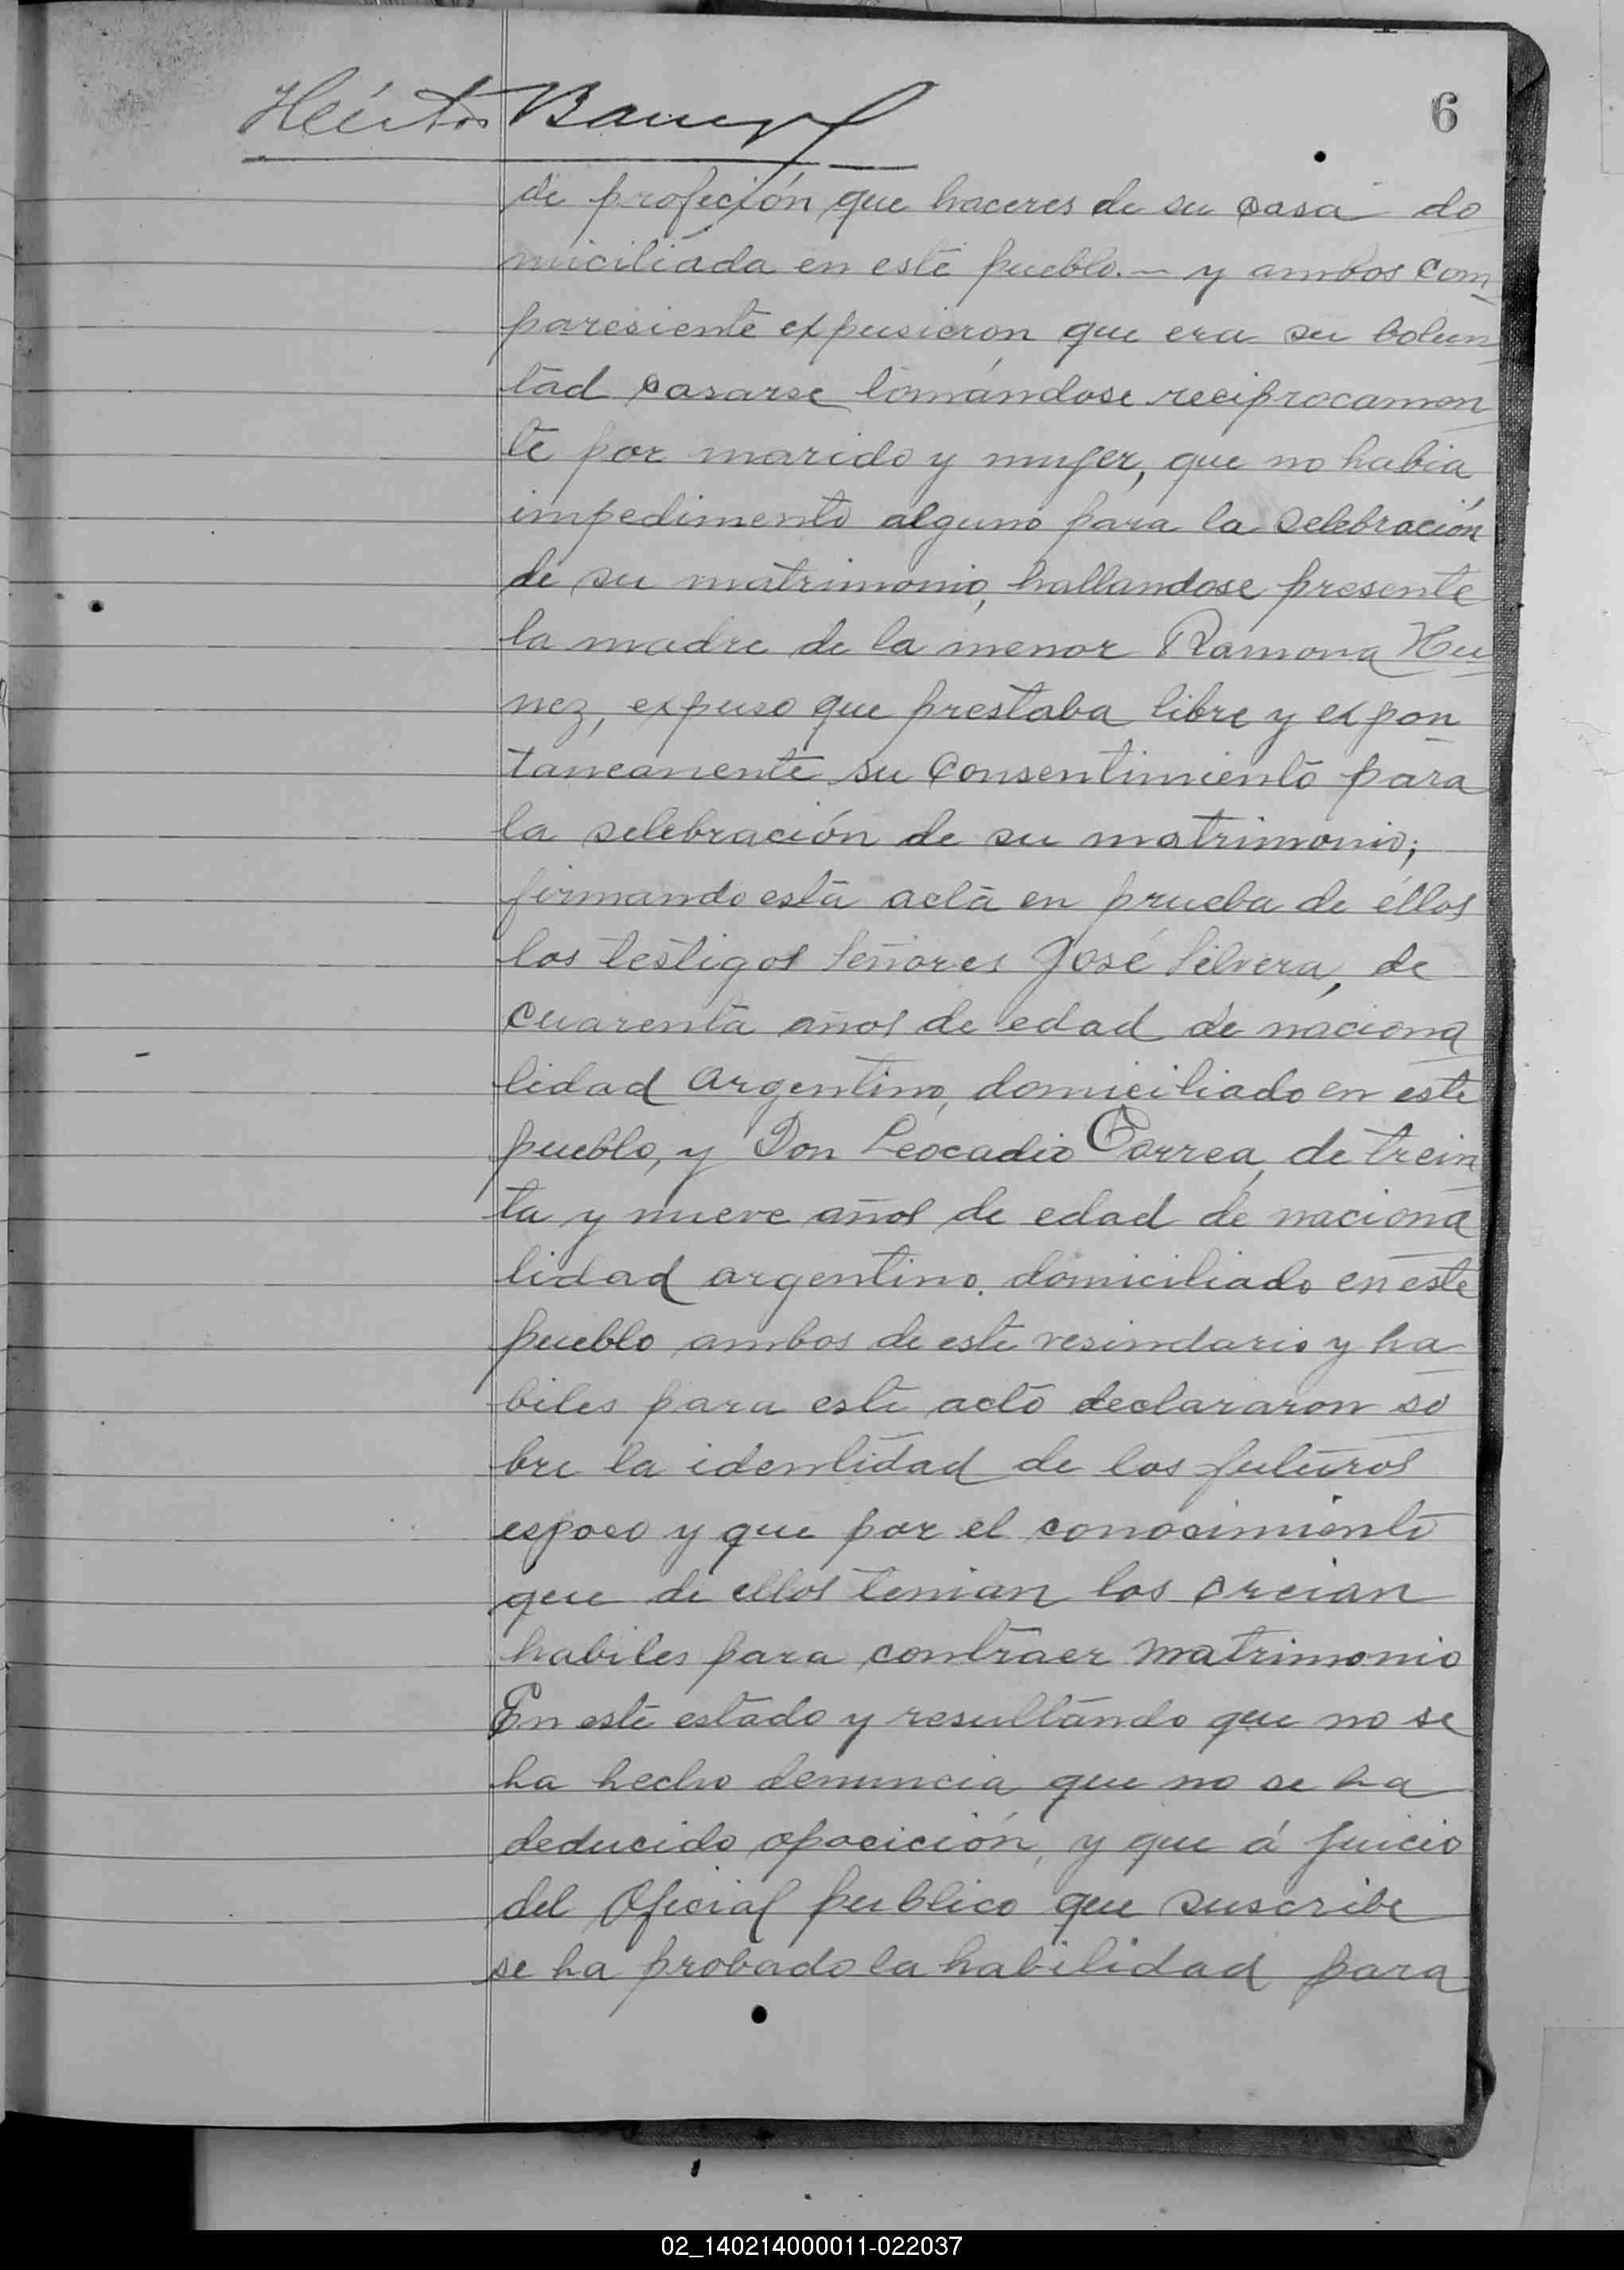 6
Héctor
de profeción que haceres de su casa do
miciliada en este pueblo.— y ambos com
paresiente expusieron que era su bolun
tad casarse tomándose reciprocamen
te por marido y mujer, que no habia
impedimento alguno para la selebración
de su matrimonio, hallandose presente
la madre de la menor Ramona Nu
nez, expuso que prestaba libre y expon
taneanente su consentimiento para
la selebración de su matrimonio;
firmando esta acta en prueba de éllos
los testigos Señores José Silvera, de
cuarenta años de edad de naciona
lidad argentino, domiciliado en este
pueblo, y Don Leocadio Correa, de trein
ta y nueve años de edad de naciona
lidad argentino. domiciliado en este
pueblo ambos de este vesindario y ha
biles para este acto declararon so
bre la identidad de los futuros
esposo y que por el conocimiento
que de ellos tenian los creian
habiles para contraer matrimonio
En este estado y resultando que no se
ha hecho denuncia que no se ha
deducido oposición, y que á juicio
del Oficial publico que suscribe
se ha probado la habilidad para
02_140214000011-022037